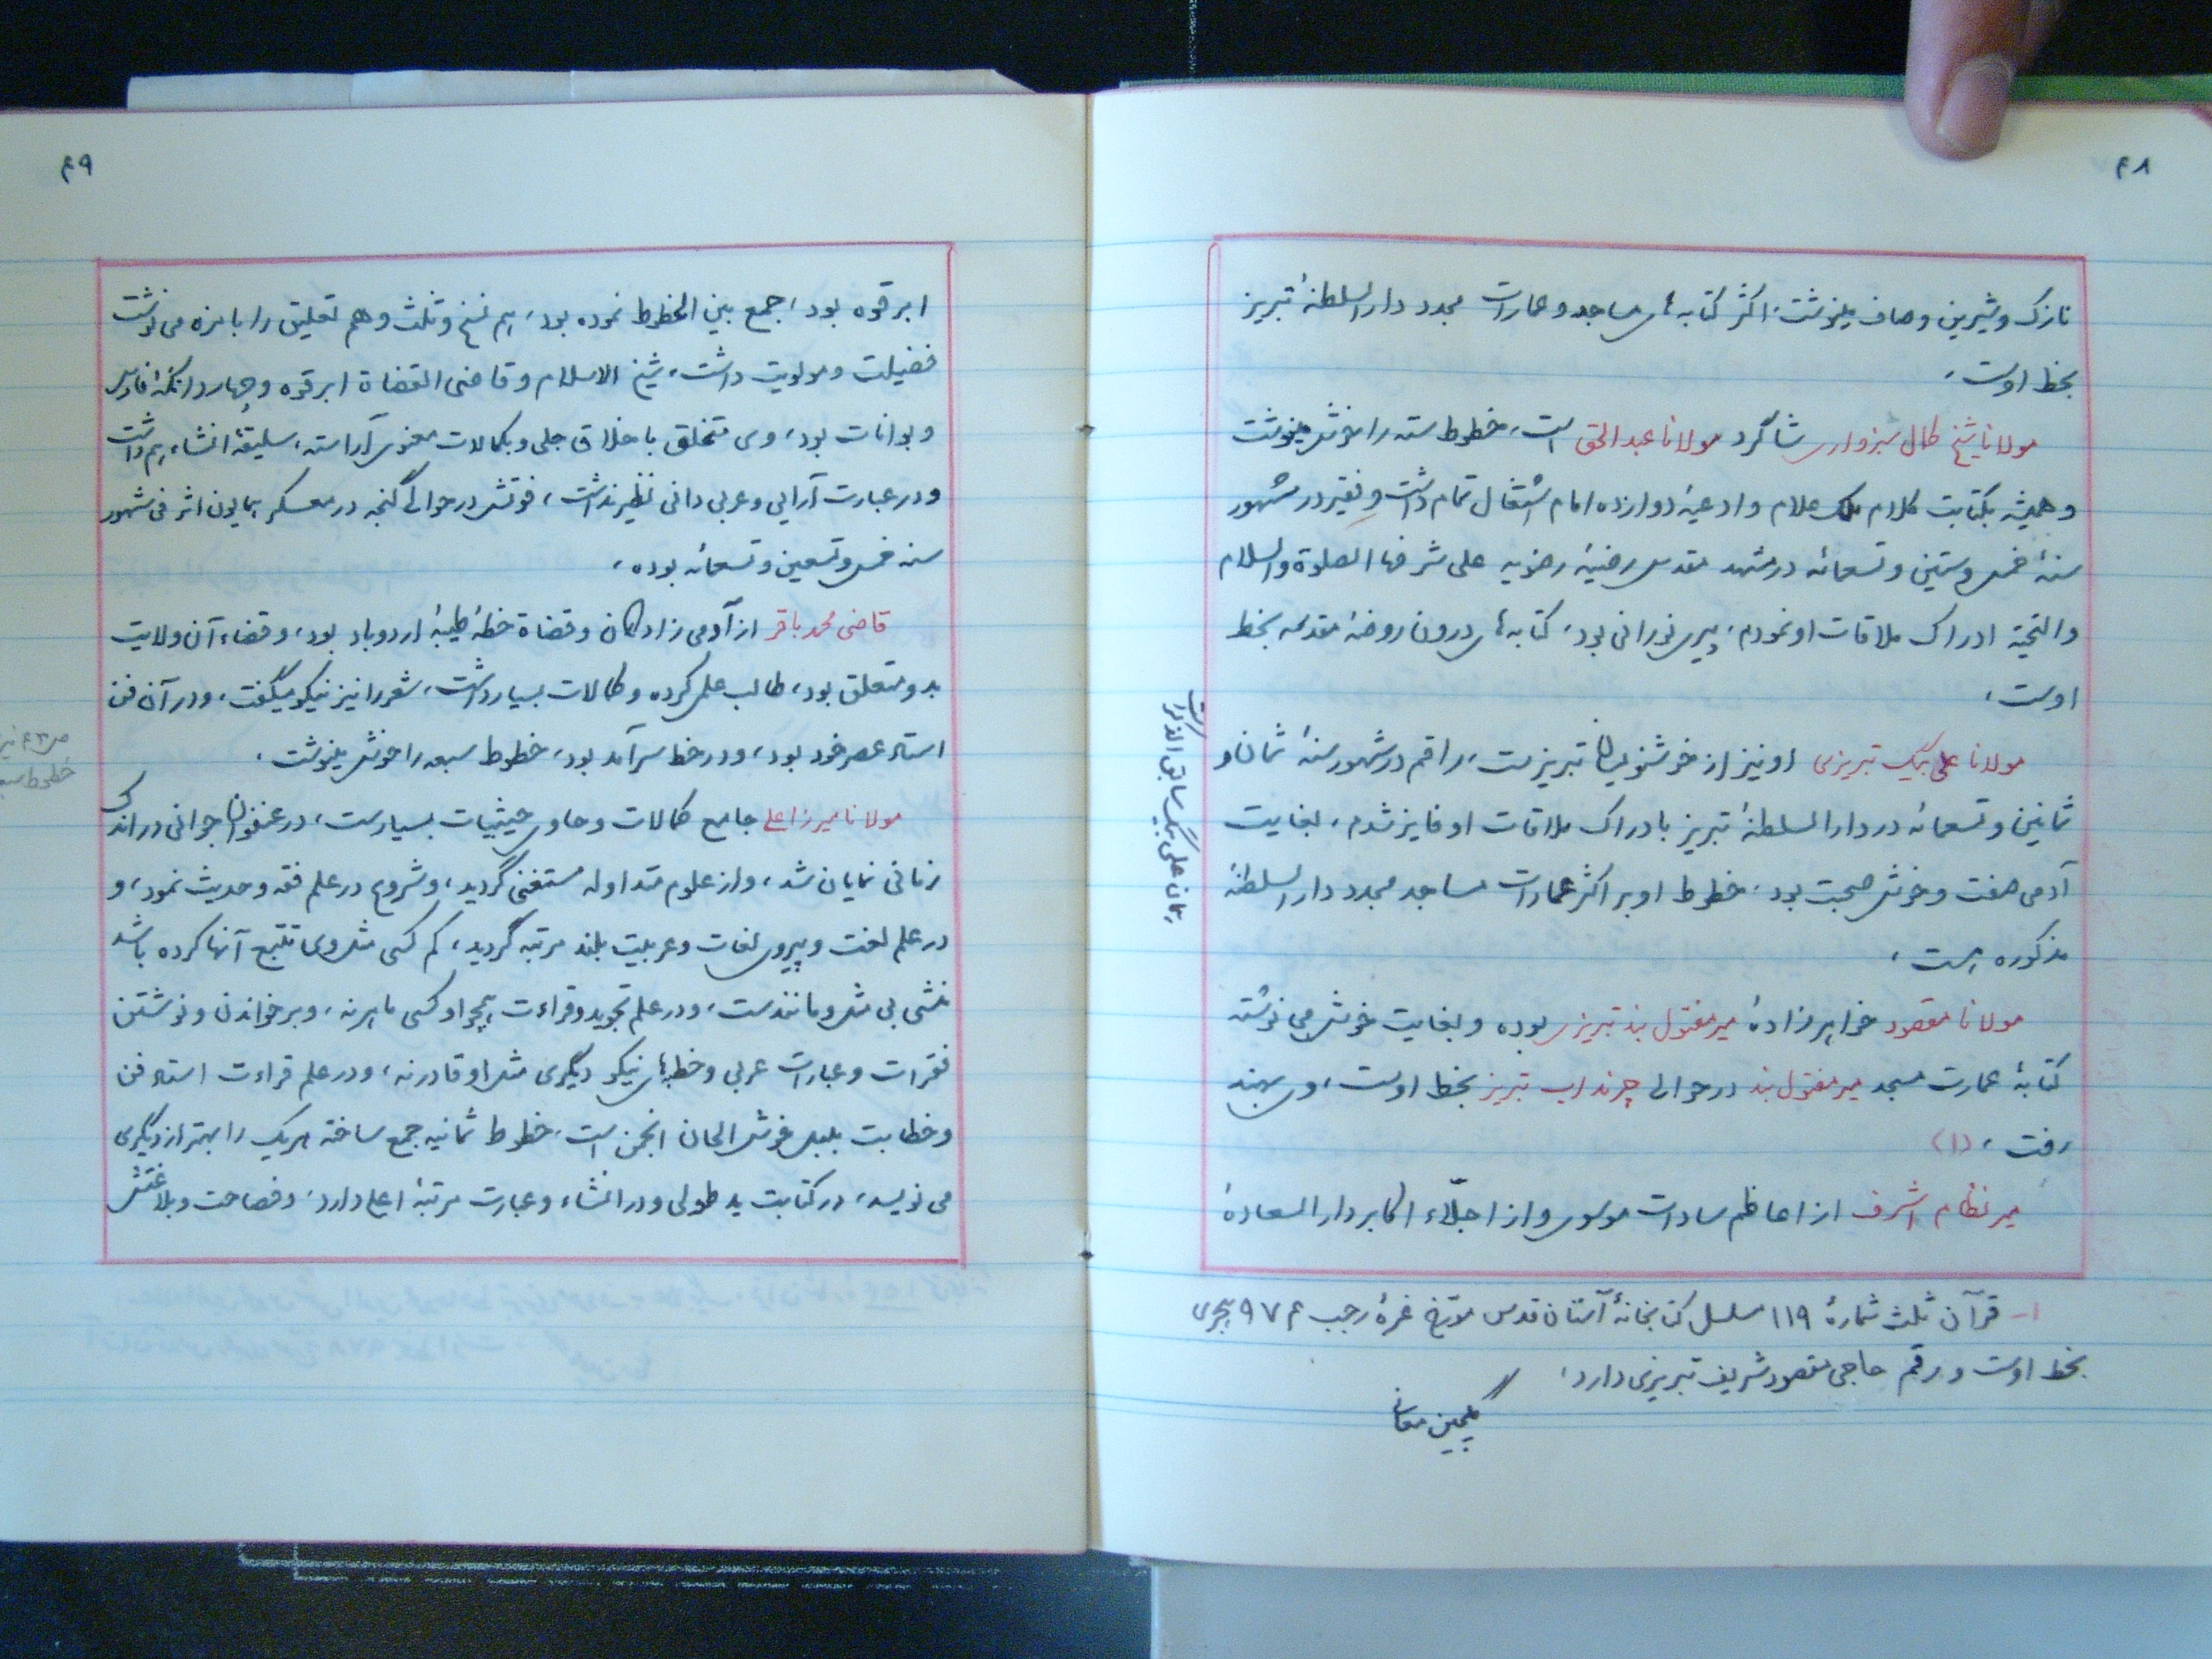 ۴۸
نازک و شیرین و صاف مینوشت، اکثر کتابه‌های مساجد و عمارات مجدد دارالسلطنهٔ تبریز
بخط اوست،
مولانا شیخ کمال سبزواری شاگرد مولانا عبدالحق است، خطوط سته را خوش مینوشت
و همیشه بکتابت کلام ملک علام و ادعیهٔ دوازده امام اشتغال تمام داشت و فقیر در شهور
سنهٔ خمس و ستین و تسعمائه در مشهد مقدس رضیهٔ رضویه علی شرفها الصلوة والسلام
والتحیّة ادراک ملاقات او نمودم، پیری نورانی بود، کتابه‌های درون روضهٔ مقدسه بخط
اوست،
مولانا علی بیک تبریزی او نیز از خوشنویسان تبریزست، راقم در شهور سنهٔ ثمان و
ثمانین و تسعمائه در دارالسلطنهٔ تبریز بادراک ملاقات او فایز شدم، بغایت
آدمی صفت و خوش صحبت بود، خطوط او بر اکثر عمارات مساجد مجدد دارالسلطنهٔ
مذکوره است،
همان علی بیگ سابق الذکر است
مولانا مقصود خواهرزادهٔ میر مفتول بند تبریزی بوده و بغایت خوش می نوشته
کتابهٔ عمارت مسجد میر مفتول بند در حوالی چرنداب تبریز بخط اوست، وی بهند
رفت، (۱)
میر نظام اشرف از اعاظم سادات موسوی و از اجلّاء اکابر دارالسعادهٔ
۱- قرآن ثلث شمارهٔ ۱۱۹ مسلسل کتابخانهٔ آستان قدس مورّخ غرهٔ رجب ۹۷۴ هجری
بخط اوست و رقم حاجی مقصود شریف تبریزی دارد،
گلچین معانی
۴۹
ابرقوه بود، جمع بین الخطوط نموده بود، هم نسخ و ثلث و هم تعلیق را بامزه می نوشت
فضیلت و مولویت داشت، شیخ الاسلام و قاضی القضاة ابرقوه و چهار دانگهٔ فارس
و بوانات بود، وی متخلق باخلاق جلی و بکمالات معنوی آراسته، سلیقهٔ انشاء هم داشت
و در عبارت آرایی و عربی دانی نظیر نداشت، فوتش در حوالی گنجه در معسکر همایون اثر فی شهور
سنه خمس و تسعین و تسعمائه بوده،
قاضی محمد باقر از آدمی زادگان و قضاة خطهٔ طیبهٔ اردوباد بود، و قضاء آن ولایت
بدو متعلق بود، طالب علمی کرده و کمالات بسیار داشت، شعر را نیز نیکو میگفت، و در آن فن
استاد عصر خود بود، و در خط سرآمد بود، خطوط سبعه را خوش مینوشت،
خطوط
مولانا میرزا علی جامع کمالات و حاوی حیثیات بسیارست، در عنفوان جوانی در اندک
زمانی نمایان شد، و از علوم متداوله مستغنی گردید، و شروع در علم فقه و حدیث نمود، و
در علم لغت و پیروی لغات و عربیت بلند مرتبه گردید، کم کسی مثل وی تتبع آنها کرده باشد
منشی بی مثل و مانندست، و در علم تجوید و قراءت همچو او کسی ماهر نه، و بر خواندن و نوشتن
فقرات و عبارات عربی و خطبهای نیکو دیگری مثل او قادر نه، و در علم قراءت استاد فن
و خطابت بلبل خوش الحان انجمن است، خطوط ثمانیه جمع ساخته هریک را بهتر از دیگری
می نویسد، در کتابت ید طولی و در انشاء و عبارت مرتبهٔ اعلی دارد، و فصاحت و بلاغتش